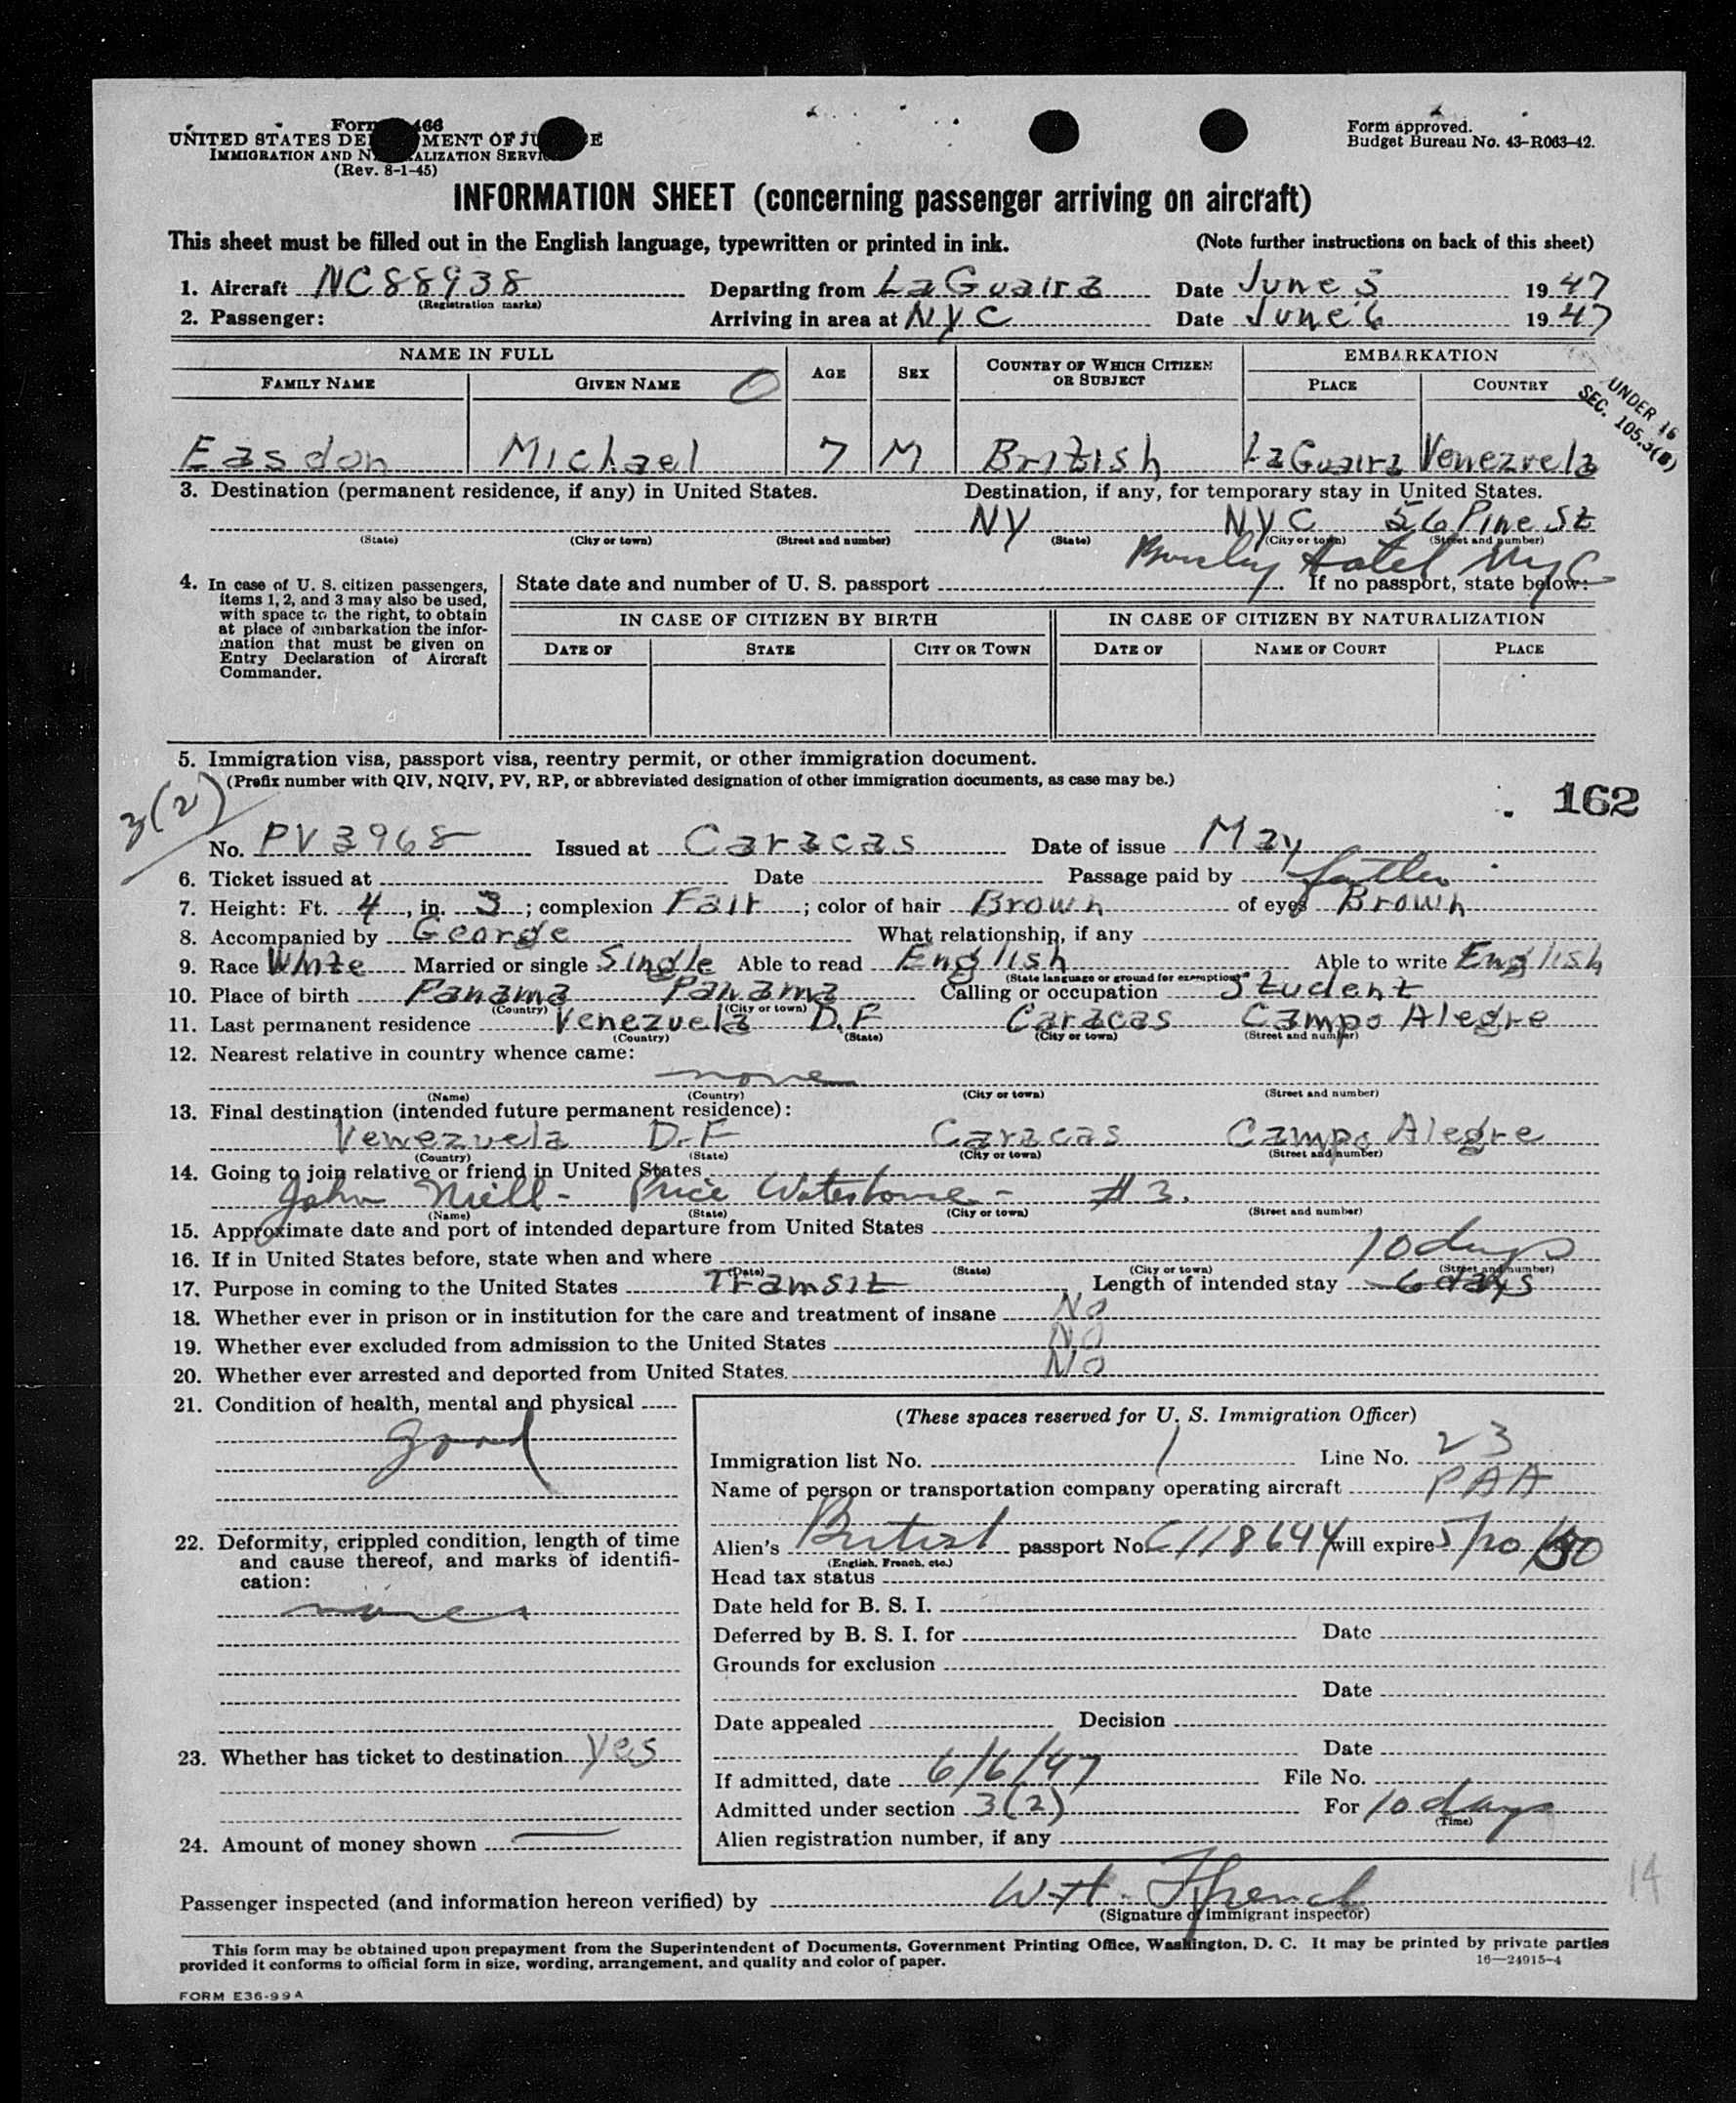 UNITED STATES DE MENT OF JU E
IMMIGRATION AND N ALIZATION SERVI
(Rev. 8-1-45)
Form approved.
Budget Bureau No. 43-R063-42.
INFORMATION SHEET (concerning passenger arriving on aircraft)
This sheet must be filled out in the English language, typewritten or printed in ink. (Note further instructions on back of this sheet)
1. Aircraft NC88938 Departing from La Guaira Date June 1947
(Registration marks)
2. Passenger: Arriving in area at NYC Date June 6 1947
NAME IN FULL AGE SEX COUNTRY OF WHICH CITIZEN OR SUBJECT EMBARKATION
FAMILY NAME GIVEN NAME PLACE COUNTRY
UNDER 16
SEC. 105.3(B)
Easdon Michael 7 M British La Guaira Venezuela
3. Destination (permanent residence, if any) in United States. Destination, if any, for temporary stay in United States.
NY NYC 56 Pine St
(State) (City or town) (Street and number) (State) (City or town) (Street and number)
Hotel NYC
4. In case of U. S. citizen passengers, items 1, 2, and 3 may also be used, with space to the right, to obtain at place of embarkation the information that must be given on Entry Declaration of Aircraft Commander.
State date and number of U. S. passport If no passport, state below:
IN CASE OF CITIZEN BY BIRTH IN CASE OF CITIZEN BY NATURALIZATION
DATE OF STATE CITY OR TOWN DATE OF NAME OF COURT PLACE
5. Immigration visa, passport visa, reentry permit, or other immigration document.
(Prefix number with QIV, NQIV, PV, RP, or abbreviated designation of other immigration documents, as case may be.)
3(2)
162
No. PV 3968 Issued at Caracas Date of issue May
6. Ticket issued at Date Passage paid by father
7. Height: Ft. 4, in. 3; complexion Fair; color of hair Brown of eyes Brown
8. Accompanied by George What relationship, if any
9. Race White Married or single Single Able to read English Able to write English
(State language or ground for exemption)
10. Place of birth Panama Panama Calling or occupation Student
(Country) (City or town)
11. Last permanent residence Venezuela D.F Caracas Campo Alegre
(Country) (State) (City or town) (Street and number)
12. Nearest relative in country whence came:
none
(Name) (Country) (City or town) (Street and number)
13. Final destination (intended future permanent residence):
Venezuela D.F Caracas Campo Alegre
(Country) (State) (City or town) (Street and number)
14. Going to join relative or friend in United States
John Niell - Price Waterhouse - #3.
(Name) (State) (City or town) (Street and number)
15. Approximate date and port of intended departure from United States
16. If in United States before, state when and where
(Date) (State) (City or town) (Street and number)
10 days
17. Purpose in coming to the United States Transit Length of intended stay 6 days
18. Whether ever in prison or in institution for the care and treatment of insane No
19. Whether ever excluded from admission to the United States NO
20. Whether ever arrested and deported from United States. No
21. Condition of health, mental and physical
good
22. Deformity, crippled condition, length of time and cause thereof, and marks of identification:
none
23. Whether has ticket to destination Yes
24. Amount of money shown —
(These spaces reserved for U. S. Immigration Officer)
Immigration list No. 1 Line No. 23
Name of person or transportation company operating aircraft PAA
Alien's British passport No. C118644 will expire 5/20/50
(English, French, etc.)
Head tax status
Date held for B. S. I.
Deferred by B. S. I. for Date
Grounds for exclusion
Date
Date appealed Decision
Date
If admitted, date 6/6/47 File No.
Admitted under section 3(2) For 10 days
(Time)
Alien registration number, if any
Passenger inspected (and information hereon verified) by W. H. French
(Signature of immigrant inspector)
14
This form may be obtained upon prepayment from the Superintendent of Documents, Government Printing Office, Washington, D. C. It may be printed by private parties
provided it conforms to official form in size, wording, arrangement, and quality and color of paper. 16—24915-4
FORM E36-99A